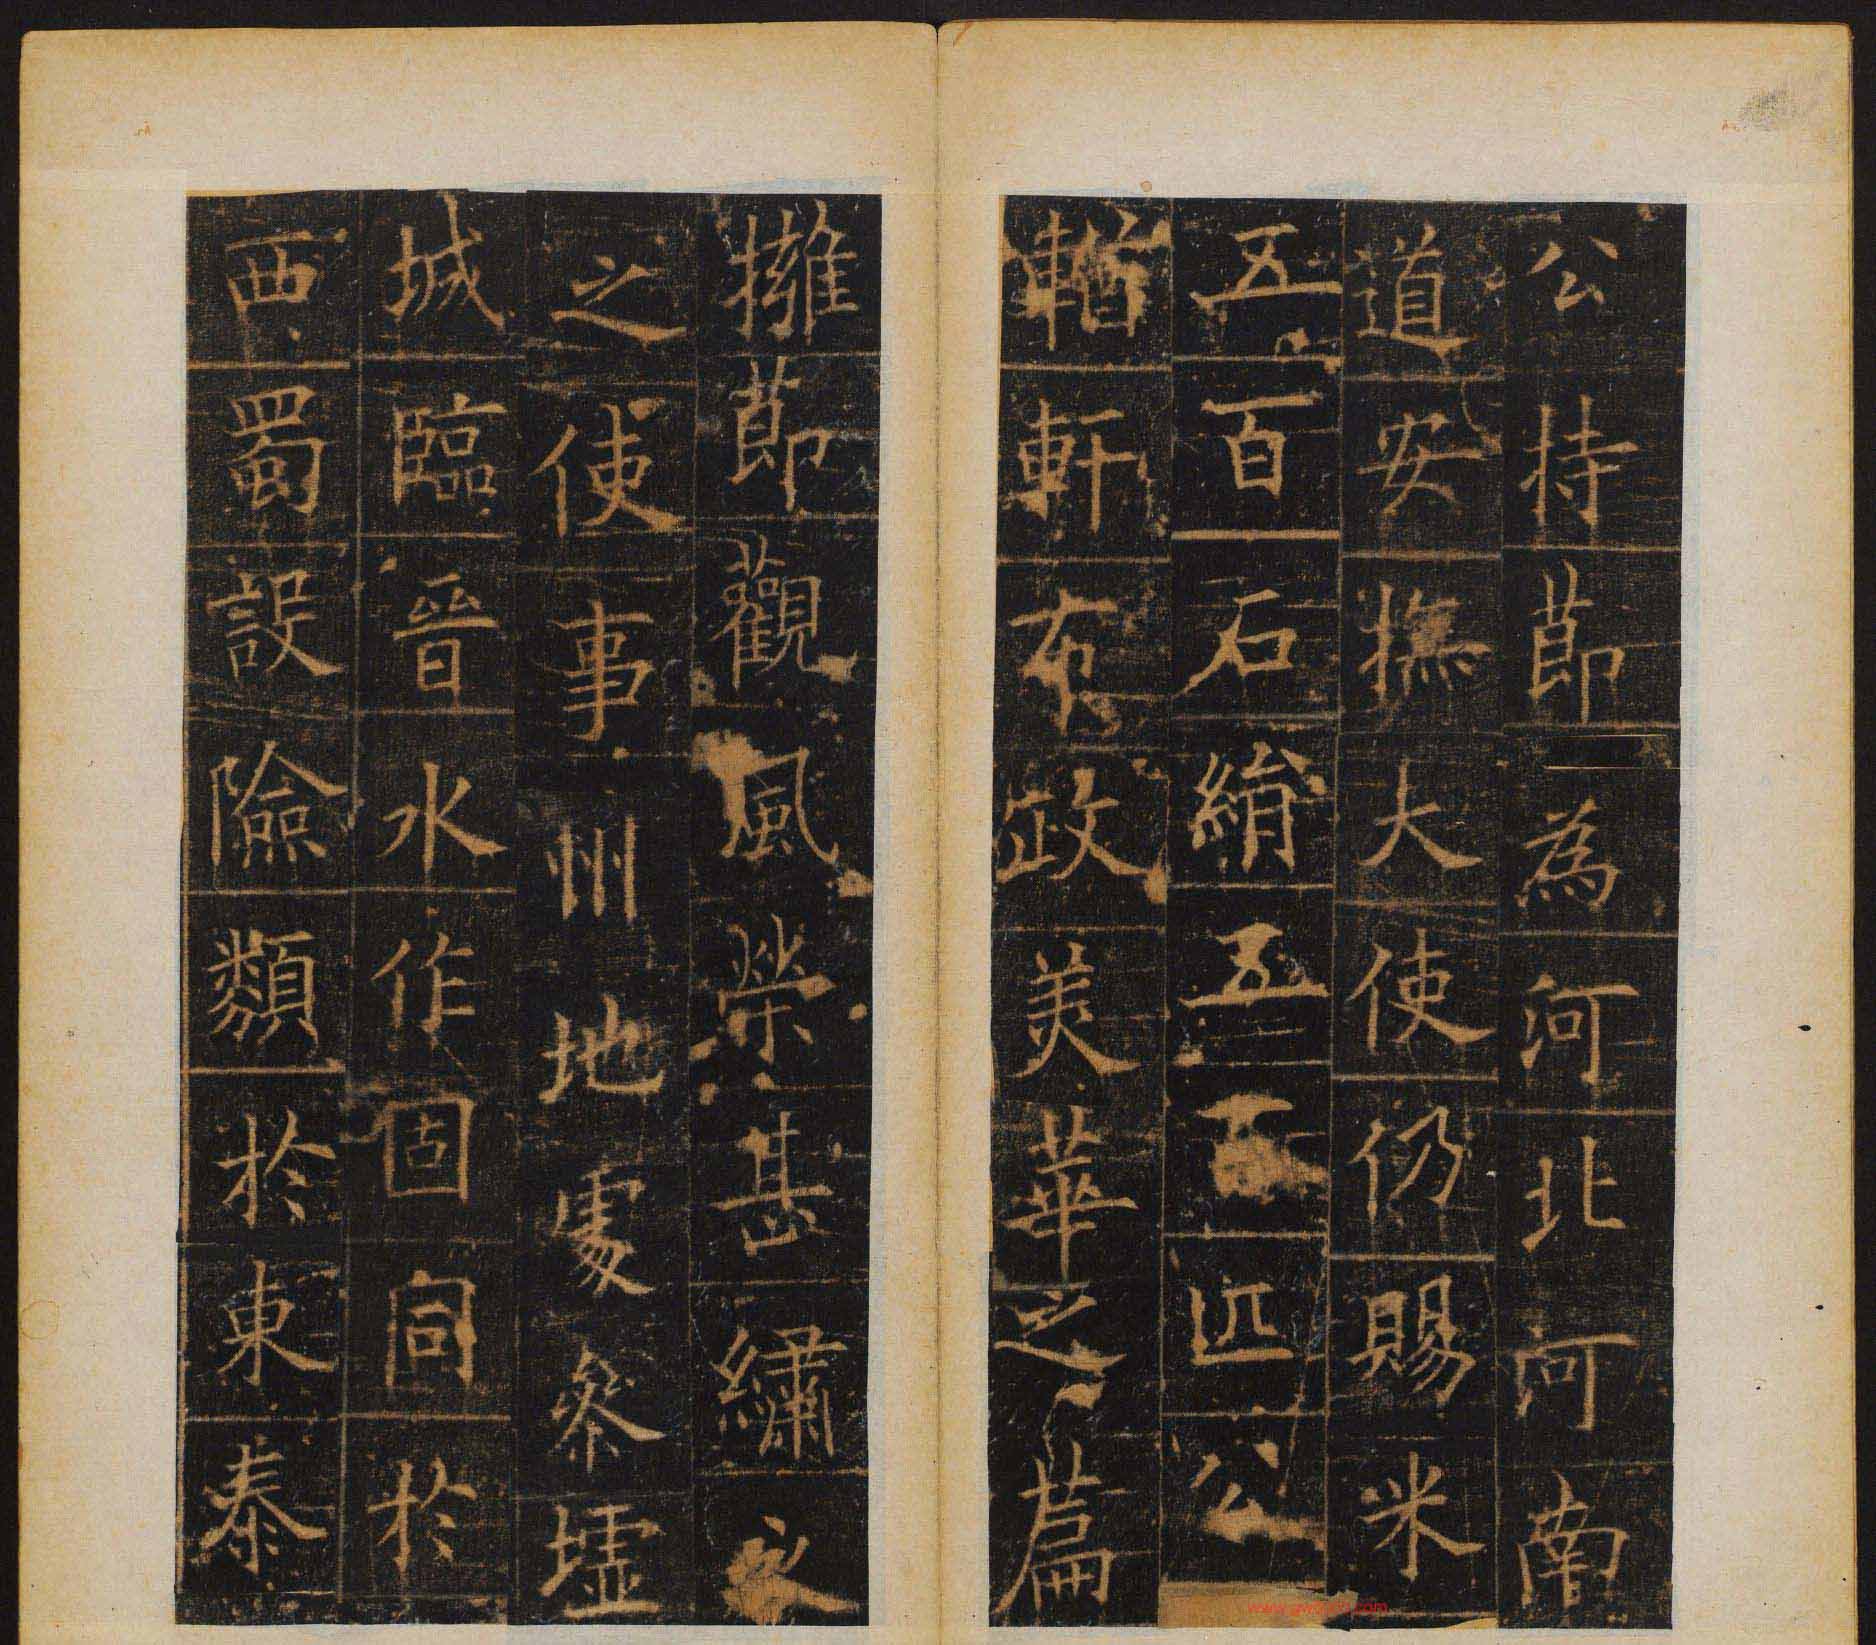 公持節為河北河南
道安撫大使仍賜米
五百石絹五匹公
輶軒布政美華之篇
擁節觀風榮甚繡衣
之使事州地處參墟
城臨晉水作固同於
西蜀設險類於東秦